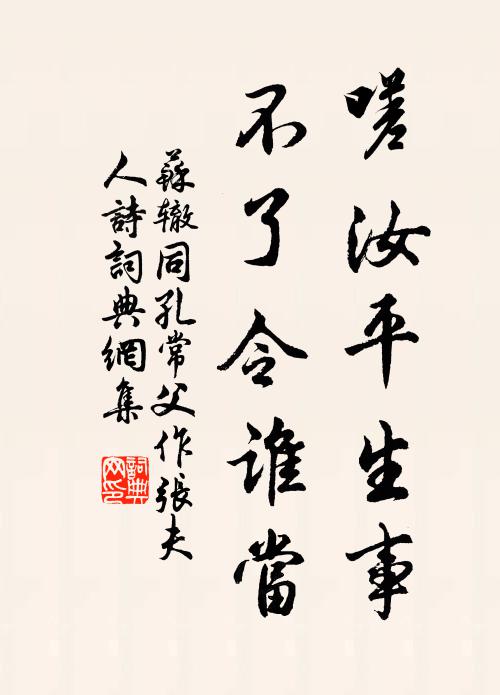 嗟汝平生事
不了令誰當
蘇轍同孔常父作張夫
人詩詞典網集
詞典
网印